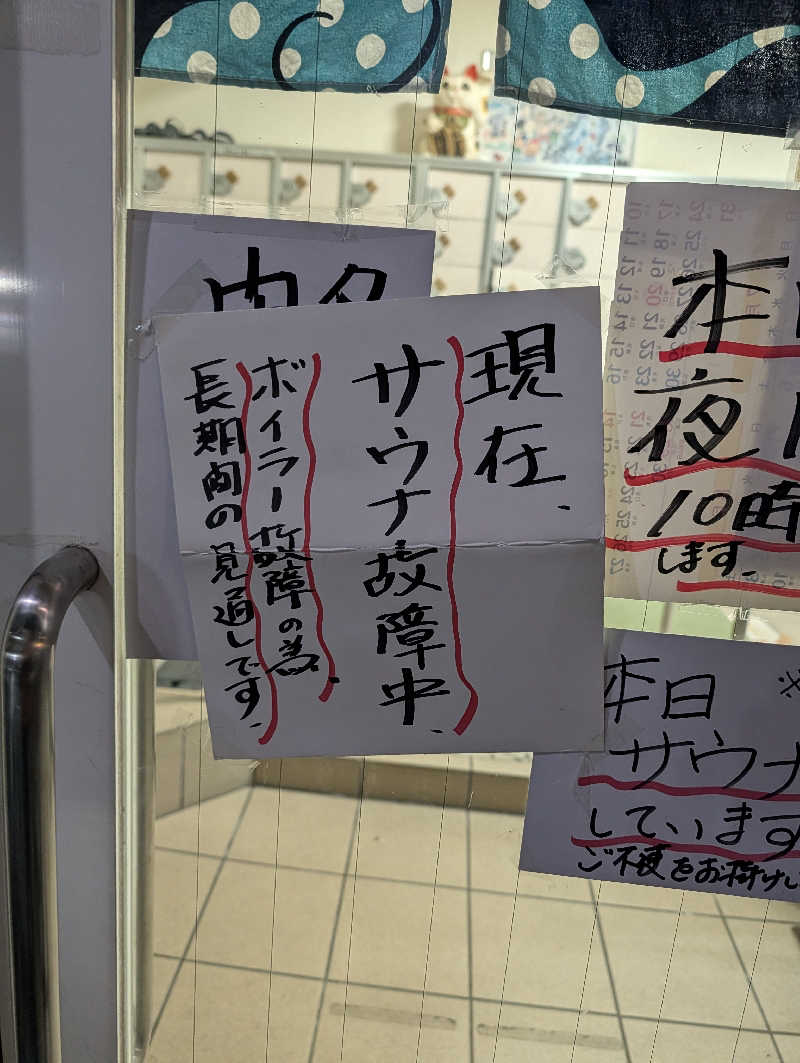 現在、
サウナ故障中、
ボイラー故障の為、
長期間の見通しです、
内
本
夜
10時
します、
本日 ※
サウナ
しています
ご不便をお掛けし